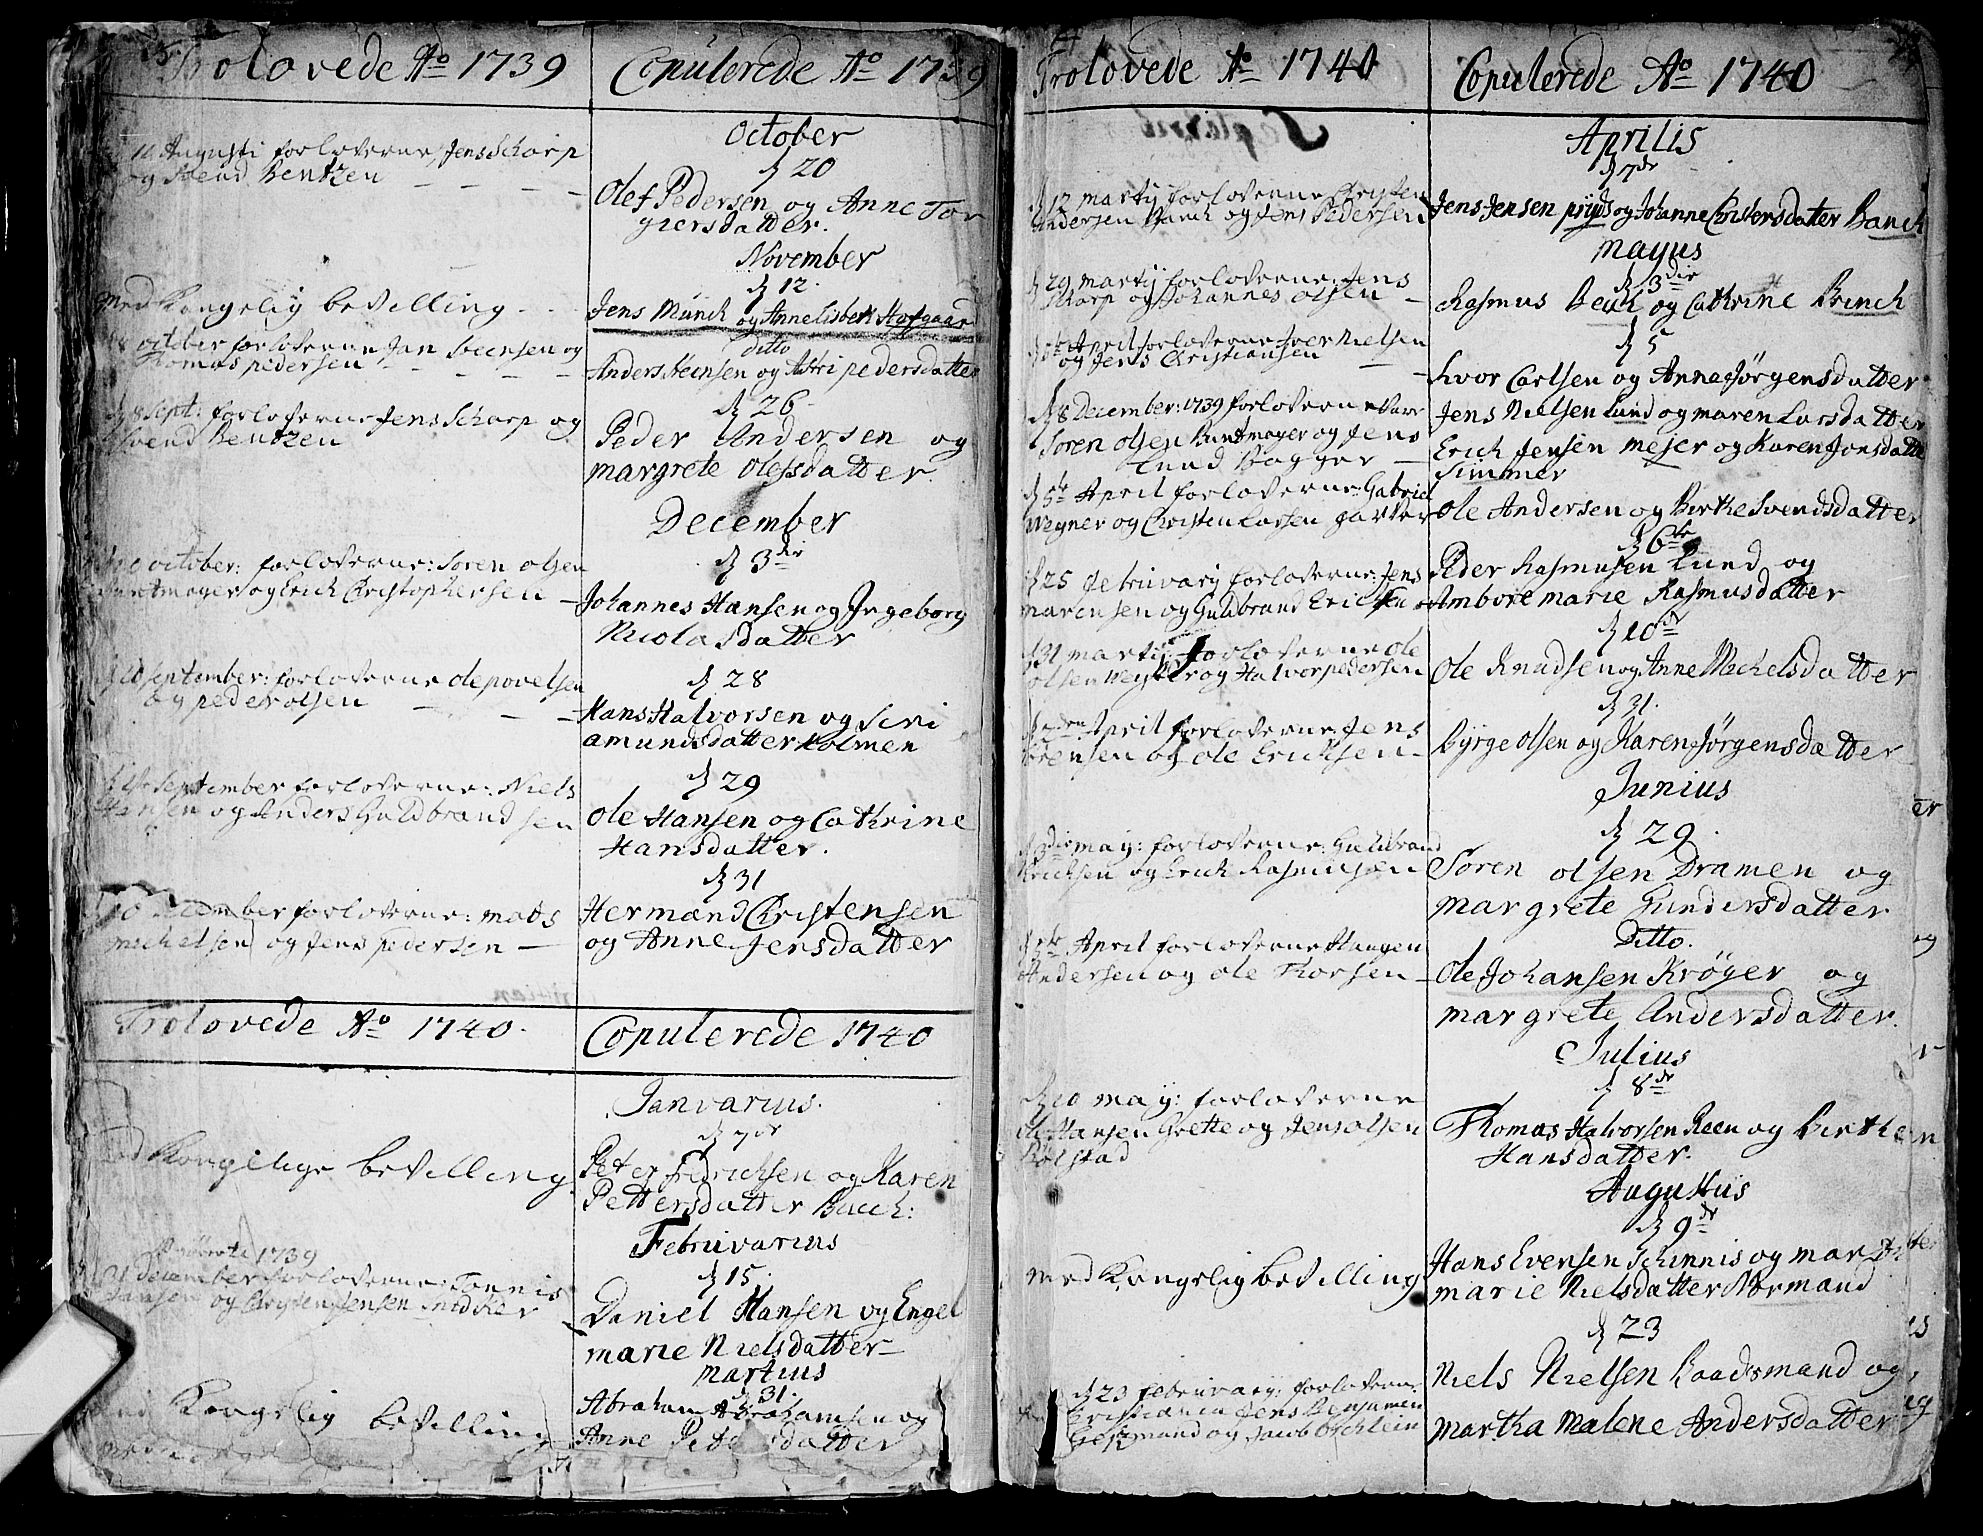 Trolovede Aº 1739
14 Augusti forloverne Jens Scharp
og Svend Bentzen
Med Kongelig bevilling
8 october forloverne Jan Svensen og
Thomas pedersen
8 Sept: forloverne Jens Scharp og
Svend Bentzen
october: forloverne: Soren olsen
Buntmager og Erich Christophersen
September: forloverne ole povelsen
og peder olsen
September forloverne: Niels
Hansen og Anders Guldbrandsen
December forloverne: mads
michelsen og Jens Pedersen
Copulerede Aº 1739
October
d 20
Olef Pedersen og Anne Tor
giersdatter.
November
d 12.
Jens Munch og Anne Lisbeth Hofgaar
Ditto
Anders Steensen og Astri pedersdatter
d 26
Peder Andersen og
margrete olessdatter.
December
d 3die
Johannes Hansen og Ingeborg
Nicolasdatter
d 28
Hans Halvorsen og Siri
amundsdatter Holmen
d 29
Ole Hansen og Cathrine
Hansdatter.
d 31
Hermand Christensen
og Anne Jensdatter
Trolovede Aº 1740.
Kongelige bevilling
1739
21 December forloverne: Tønnis
Jansen og Christen Jensen Snidker
Kongelig bevilling
Copulerede 1740
Janvarius.
d 7de
Peter Fedricksen og Karen
Pettersdatter Buch:
Februvarius
d 15.
Daniel Hansen og Engel
marie Nielsdatter
martius
d 31.
Abraham Abrahamsen og
Anne Petersdatter
Trolovede Aº 1740
d 12 martij forloverne Christen
Andersen Banch og Jens Pedersen
d 29 martij forloverne: Jens
Scharp og Johannes olsen
April forloverne Iver Nielsen
og Jens Christiansen
d 8 December: 1739 forloverne vare
Soren olsen Buntmager og Jens
Lund Bagger
d 5te April forloverne: Gabriel
Wegner og Christen Larsen garver
d 25 Februvarij forloverne: Jens
marensen og Guldbrand Ericksen
d 31 martij: forloverne ole
olsen Wegner og Halvor pedersen
April forloverne: Jens
Sørensen og ole Ericksen
may: forloverne: Guldbrand
Ericksen og Erick Rasmussen
April forloverne Haagen
Andersen og ole Thorsen
d 20 may: forloverne
ole Hansen Grette og Jens olsen
Bolstad
med Kongelig bevilling
d 23 Februvarij: forlovern:
Christiania Jens Benjamin
og Jacob
Copulerede Aº 1740
Aprilis
d 7de
Jens Jensen pryds og Johanne Christensdatter Banch
Mayus
d 3die
Rasmus Beuch og Cathrine Brinch
d 5
Hvor Carlsen og Anne Jørgensdatter
Jens Nielsen Lund og maren Larsdatter
Erich Jensen mejer og Karen Jonsdatte
Simmer
Ole Andersen og Birthe Svendsdatter
d 6te
Peder Rasmusen Lund og
Ambore marie Rasmusdatter
d 20de
Ole Knudsen og Anne Mechelsdatter
d 31.
Byrge olsen og Karen Jørgensdatter
Junius
d 29.
Soren olsen Dramen og
margrete Gundersdatter
Ditto.
Ole Johansen Krøger og
margrete Andersdatter.
Julius
d 8de
Thomas Halvorsen Reen og Birthe
Hansdatter.
Augustus
d 9de
Hans Evensen Schinnis og mar
marie Nielsdatter Normand
d 23
Niels Nielsen Raadsmand og
martha malene Andersdatter